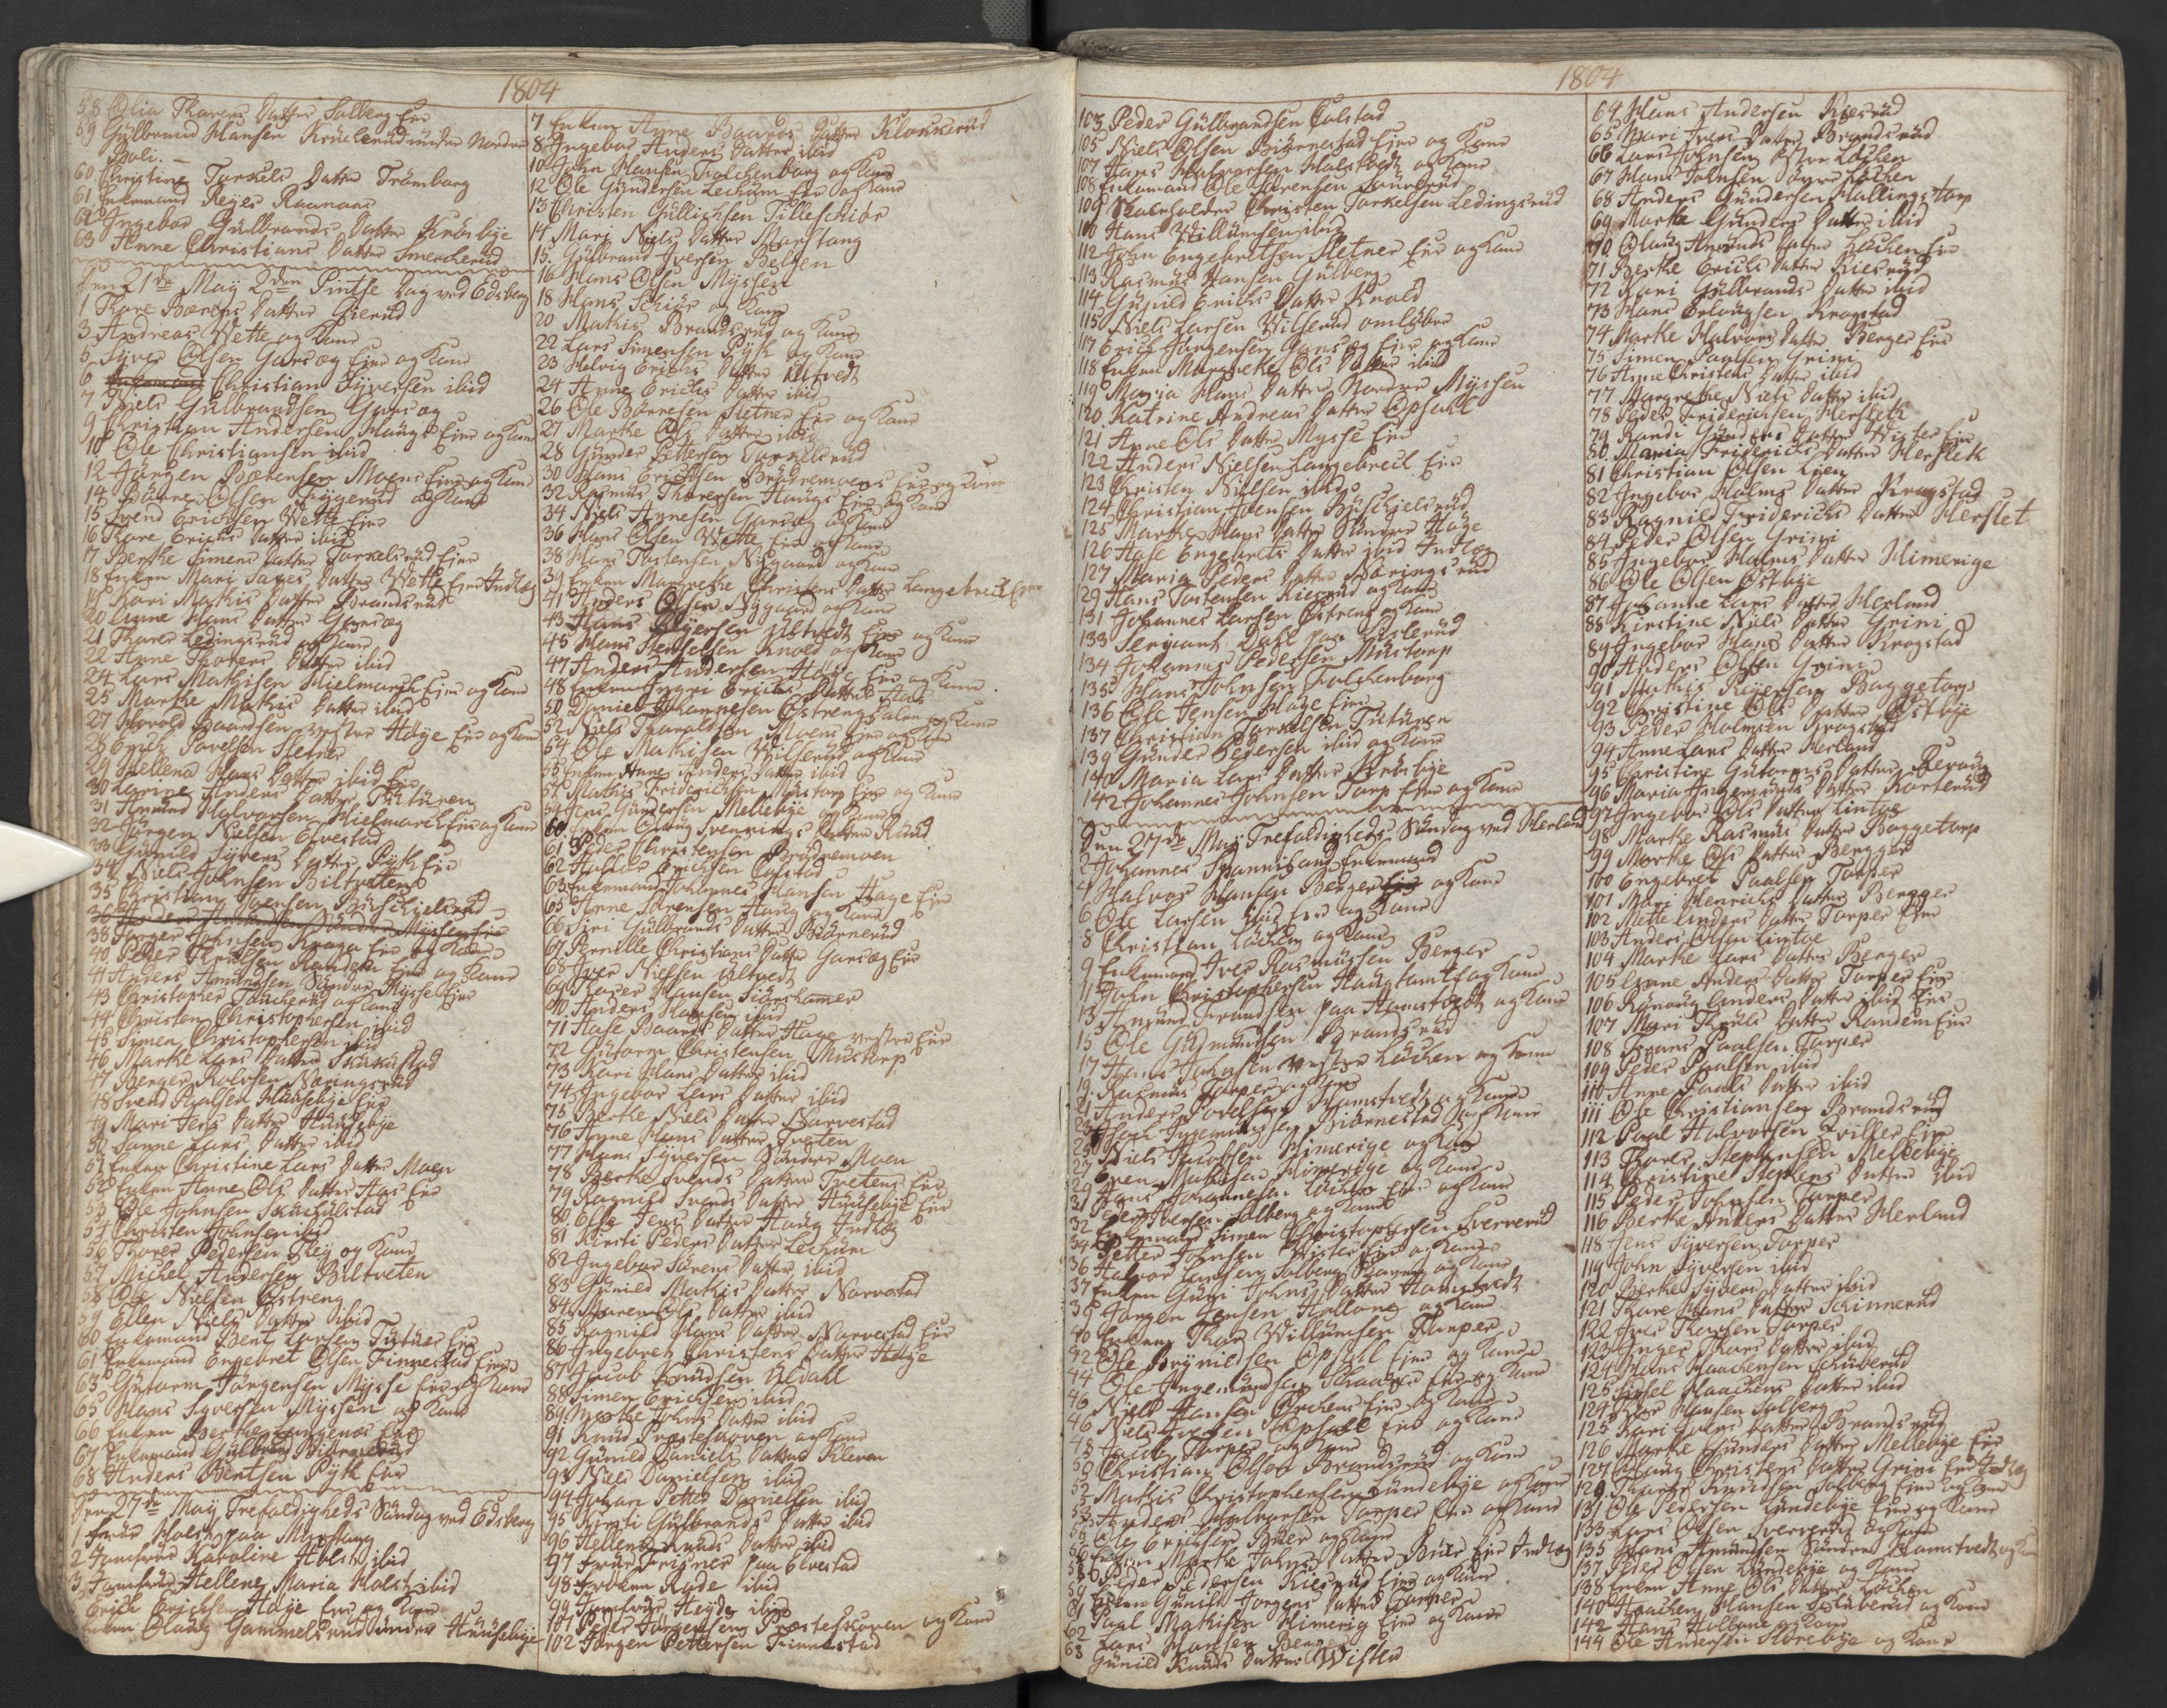 1804
58 Olia Thorers Datter Solberg Eier
59 Gulbrand Hansen Krüclerüd under Nordre
Boli. —
60 Christine Torkels Datter Trömborg
61 Enkemand Reyer Raanaas
62 Ingebor Gulbrands Datter Krösbye
63 Anne Christians Datter Smecherüd
Den 21de May 2den Pintse Dag ved Edsberg
1 Thore Bærens Datter Gierüd
3 Andreas Wette og Kone
5 Syver Olsen Garseg Eier og Kone
6 Christian Syversen ibid
7 Niels Gulbrandsen Garseg
9 Christian Andersen Haugs Eier og Kone
10 Ole Christiansen ibid
12 Jörgen Bærensen Moens Eier og Kone
14 Baare Olsen og Kone
15 Svend Erichsen Wette Eier
16 Kore Erichs Datter ibid
17 Berthe Simens Datter Torkelsrüd Eier
18 Enken Mari Datter Wette Eier Indlæg
19 Kari Mathis Datter Brandsrud
20 Anne Hans Datter Garseg
21 Thorer Ledingsrüd og Kone
22 Anne Thorers Datter ibid
24 Lars Mathisen Hielmarch Eier og Kone
25 Marthe Mathis Datter ibid
27 Harold Baardsen vestre Höije Eier og Kone
28 Erich Povelsen Sletner
29 Hellena Hans Datter ibid Eier
30 Karine Anders Datter Tüturen
31 Amund Halvorsen Hielmark Eier og Kone
32 Jörgen Nielsen Elvestad
33 Gunild Syvers Datter Pyth Eier
34 Niels Johnsen Biltvetten
35 Christian Joensen Büschielsrüd
38 Torger Johnsen Kraga Eier og Kone
40 Peder Nielsen Randem Eier og Kone
41 Anders Amundsen Søndre Mysse Eier
43 Christopher og Kone
44 Christen Christophersen ibid
45 Simen Christophersen ibid
46 Marthe Lars Datter
47 Berger Rolvsen Næringsrüd
48 Svend Paalsen Huusebye Eier
49 Mari Jens Datter Huusebye
50 Sanne Lars Datter ibid
51 Enken Christine Lars Datter Moen
52 Enken Anne Ols Datter Aas Eier
53 Ole Johnsen
54 Christen Johnsen ibid
56 Thorer Pedersen Fley og Kone
57 Michel Andersen Biltveten
58 Ole Nielsen Østreng
59 Ellen Niels Datter ibid
60 Enkemand Bent Larsen Eier
61 Enkemand Engebret Olsen Finnestad Eier
63 Gutorm Jörgensen Mysse Eier og Kone
65 Hans Syversen Myssen og Kone
66 Enken Berthe Eier
67 Enkemand Gulbrand Biörnerud
68 Anders Bentsen Pyth Eier
Den 27de May Trefoldigheds Søndag ved Edsberg
1 Frue Holst paa Morstang
2 Jomfrue Karoline Holst ibid
3 Jomfrue Hellene Maria Holst ibid
Erich Erichsen Høije Eier og Kone
Enken Olaug Gammelsrud under Huusebye
7 Enken Anne Baards Datter Klokkerüd
8 Ingebor Anders Datter ibid
10 John Hansen Folchenborg og Kone
12 Ole Gundersen Lechum Eier og Kone
13 Christen Gullichsen Tilleschiör
14 Mari Niels Datter Morstang
15 Gulbrand Iversen Belgen
16 Hans Olsen Myssen
18 Hans Schiör og Kone
20 Mathis Brandsrud og Kone
22 Lars Simensen Pyth og Kone
23 Helvig Erichs Datter Ultvedt
24 Anne Erichs Datter ibid
26 Ole Börresen Sletner Eier og Kone
27 Marthe Ols Datter ibid
28 Gunder Pettersen Torkelsrüd
30 Hans Erichsen Brüdremoens Eier og Kone
32 Rasmus Thoresen Haugs Eier og Kone
34 Niels Arnesen Garseg og Kone
36 Hans Olsen Wette Eier og Kone
38 Hans Tostensen Nygaard og Kone
39 Enken Margrethe Christens Datter Langebrech Eier
41 Anders Olsen Nygaard og Kone
43 Hans Syversen Ultvedt Eier og Kone
45 Hans Stenselsen Knold og Kone
47 Anders Andersen Høije Eier og Kone
48 Enken Ingri Erichs Datter Aas
50 Daniel Johannesen Østreng og Kone
52 Niels Tharaldsen Moens Eier og Kone
54 Ole Mathisen Wilserud og Kone
55 Enken Anne Anders Datter ibid
57 Mathis Friderichsen Mustorp Eier og Kone
59 Jens Gundersen Mellebye og Kone
60 Enken Olaug Svennings Datter Rüüd
61 Peder Christensen Brüdremoen
62 Halvor Erichsen Colstad
63 Enkemand Johannes Hansen Hage Eier
65 Arne Sörensen Haug og Kone
66 Siri Gulbrands Datter Biörnerud
67 Pernille Christians Datter Garseg Eier
68 Iver Nielsen Ultvedt
69 Hansen Siörschamer
70 Anders Hansen ibid
71 Aase Baards Datter Hage vestre Eier
72 Gutorm Christensen Mustorp
73 Kari Hans Datter ibid
74 Ingebor Lars Datter ibid
75 Berthe Niels Datter Narvestad
76 Anne Hans Datter
77 Hans Syversen Søndre Moen
78 Berthe Svends Datter Eier
79 Ragnild Svends Datter Huusebye Eier
80 Else Jens Datter Haug Indlæg
81 Kirsti Peders Datter Lechum
82 Ingebor Sörens Datter ibid
83 Gunild Mathis Datter Narvestad
84 Maren Ols Datter ibid
85 Ragnild Hans Datter Narvestad Eier
86 Ingebret Christens Datter Høije
87 Jacob Knudsen Uldahl
88 Simen Erichsen ibid
89 Marthe Johns Datter ibid
91 Knud Præsteskoven og Kone
92 Gunild Daniels Datter Kleven
93 Niels Danielsen ibid
94 Johan Petter Danielsen ibid
95 Kirsti Gulbrands Datter ibid
96 Hellene Knuds Datter ibid
97 Frue Kreigner paa Elvestad
98 Frøken Rode ibid
99 Jomfrue Heyde ibid
101 Peder Jörgensen Præsteskoven og Kone
102 Jörgen Pettersen Finnestad
1804
103 Peder Gulbrandsen Colstad
105 Niels Olsen Biörnestad Eier og Kone
107 Hans Halvorsen og Kone
108 Enkemand Ole Sörensen
109 Skoleholder Christen Torkelsen Ledingsrüd
110 Hans Willumsen ibid
112 John Engebretsen Sletner Eier og Kone
113 Rasmus Hansen Gulberg
114 Gunild Erichs Datter Knold
115 Niels Larsen Wilserud omløber
117 Erich Jörgensen Garseg Eier og Kone
118 Enken Margrethe Ols Datter ibid
119 Maria Hans Datter Nordre Myssen
120 Katrine Andreas Datter Opsahl
121 Anne Ols Datter Mysse Eier
122 Anders Nielsen Langebrech Eier
123 Christen Nielsen ibid
124 Christian Joensen Büschielsrüd
125 Marthe Hans Datter Søndre Hage
126 Aase Engebrets Datter ibid Indlæg
127 Maria Peders Datter Næringsrüd
129 Hans Tostensen Kiesrud og Kone
131 Johannes Larsen Østreng og Kone
133 Sergiant Dahl paa
134 Johannes Pedersen Mustorp
135 Hans Johnsen Folchenborg
136 Ole Jensen Hage Eier
137 Christian Torkelsen Tüturen
139 Gunder Pedersen ibid og Kone
140 Maria Lars Datter Krösbye
142 Johannes Johnsen Torp Eier og Kone
Den 27de May Trefoldigheds Søndag ved Herland
2 Johannes Enkemand
4 Halvor Hansen Berger og Kone
6 Ole Larsen ibid Eier og Kone
8 Christian Løchen og Kone
9 Enkemand Iver Rasmussen Berger
11 John Christophersen og Kone
13 Amund paa Hamstvedt og Kone
15 Ole Gudmundsen Brandsrüd
17 Hans Johnsen vestre Løchen og Kone
19 Rasmus Torper og Kone
21 Anders Povelsen Hamstvedt og Kone
23 Ingemundsen Biörnestad og Kone
25 Niels Jacobsen Himerige og Kone
27 Even Mathisen Himerige og Kone
29 Hans Johannesen Løchen Eier og Kone
31 Peder Iversen Solberg og Kone
32 Enkemand Simen Christophersen Sververüd
34 Petter Johnsen Wister Eier og Kone
36 Halvor Solberg og Kone
37 Enken Guri Johns Datter Hamstvedt
39 Jörgen Jensen Hollone og Kone
40 Enken Willumsen Torper
42 Ole Brynildsen Opsahl Eier og Kone
44 Ole Ingemundsen Eier og Kone
46 Niels Hansen Eier og Kone
46 Niels Iversen Opsahl Eier og Kone
48 Jacob Torper og Kone
50 Christian Olsen Brandsrüd og Kone
52 Mathis Christophersen Lundebye og Kone
Anders Halvorsen Torper Eier og Kone
Ole Erichsen Buer og Kone
Enken Marthe Johns Datter Buer Eier Indlæg
Peder Pedersen Kiesrud Eier og Kone
59 Enken Gunild Jörgens Datter Torper
61 Paal Mathisen Himerig Eier og Kone
62 Lars Hansen Berger
63 Gunild Knuds Datter Wister
64 Hans Andersen Kiesrud
65 Mari Ivers Datter Brandsrüd
66 Lars Johnsen østre Løchen
67 Hans Johnsen øvre Løchen
68 Anders Gundersen Hallingstorp
69 Marthe Gunders Datter ibid
70 Olaug Amunds Datter Løchen Eier
71 Berthe Erichs Datter Kiesrud
72 Kari Gulbrands Datter ibid
73 Hans Erlougsen Krogstad
74 Marthe Halvors Datter Berger Eier
75 Simen Paalsen Grini
76 Anne Christens Datter ibid
77 Margrethe Niels Datter ibid
78 Peder Friderichsen Herfleth
79 Randi Gunders Datter Wister Eier
80 Maria Friderichs Datter Herfleth
81 Christian Olsen Lien
82 Ingebor Holms Datter Krogstad
83 Ragnild Friderichs Datter Herflet
84 Peder Olsen Grini
85 Ingebor Holms Datter Himerige
86 Ole Olsen Østbye
87 Johanne Lars Datter Herland
88 Kirstine Niels Datter Grini
89 Ingebor Hans Datter Krogstad
90 Anders Olsen Grini
91 Mathis Reyersen Baggetorp
92 Christine Ols Datter Østbye
93 Peder Holmsen Krogstad
94 Anne Lars Datter Herland
95 Christine Gutorms Datter Reraug
96 Maria Ingemunds Datter Korterüd
97 Ingebor Ols Datter Lintoe
98 Marthe Rasmus Datter Baggetorp
99 Marthe Ols Datter Bergger
100 Engebret Paalsen Torper
101 Mari Henrichs Datter Bergger
102 Mette Anders Datter Torper Eier
103 Anders Olsen Lintoe
104 Marthe Lars Datter Berger
105 Anne Anders Datter Torper Eier
106 Rønaug Anders Datter ibid Eier
107 Mari Truls Datter Randem Eier
108 Frans Paalsen Torper
109 Peder Paalsen ibid
110 Anne Paals Datter ibid
111 Ole Christiansen Brandsrüd
112 Paal Halvorsen Eier
113 Thorer Stephensen Mellebye
114 Christine Stephens Datter ibid
115 Peder Johnsen Torper
116 Berthe Anders Datter Herland
118 Jens Syversen Torper
119 John Syversen ibid
120 Berthe Syvers Datter ibid
121 Thore Hans Datter Schinnerüd
122 Iver Thorsen Torper
123 Inger Thors Datter ibid
124 Hans Haachensen Schüberüd
125 Sissel Haachens Datter ibid
124 Hansen Solberg
125 Kari Ivers Datter Brandsrüd
126 Marthe Gunders Datter Mellebye Eier
127 Olaug Christens Datter Grini Eier Indlæg
129 Knudsen Solberg Eier og Kone
131 Ole Pedersen Lundebye Eier og Kone
133 Lars Olsen Sververüd og Kone
135 Hans Amundsen Søndre Hamstvedt og Kone
137 Peder Olsen Lundebye og Kone
138 Enken Anne Ols Datter Løchen
140 Haachen Hansen Schüberüd og Kone
142 Hans Hollone og Kone
144 Ole Andersen Slorebye og Kone